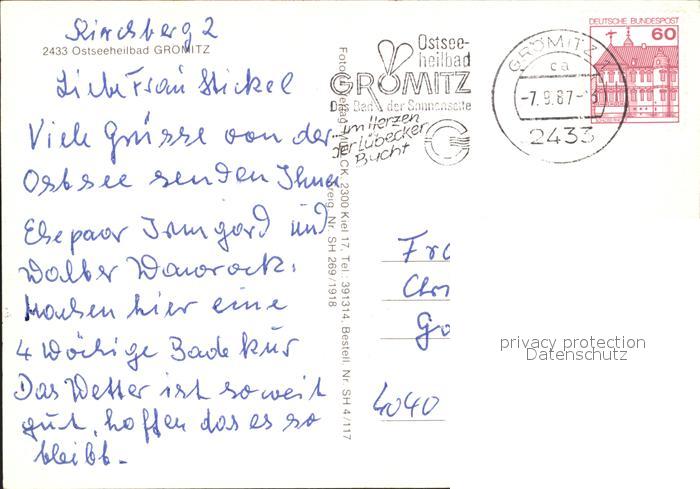 Kirchberg 2
2433 Ostseeheilbad GRÖMITZ
Liebe Frau Stickel
Viele Grüsse von der
Ostsee senden Ihnen
Ehepaar Irmgard und
Walter
Machen hier eine
4 Wöchige Badekur
Das Wetter ist soweit
gut, hoffen das es so
bleibt.
2300 Kiel 17, Tel.: 391314, Bestell. Nr. SH 4/117
Freig. Nr. SH 269/1918
Ostsee-
heilbad
GRÖMITZ
Das Bad an der Sonnenseite
...im Herzen
der Lübecker
Bucht
GRÖMITZ 1
ca
-7.9.87-
2433
DEUTSCHE BUNDESPOST
60
Fra
Chri
Go
4040
privacy protection
Datenschutz